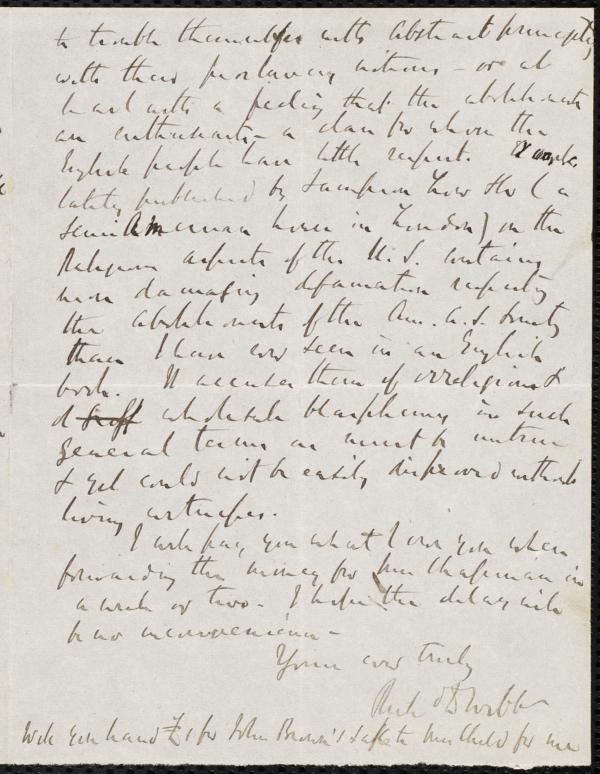 to trouble themselves with abstract principles
with their proslavery notions - or at
least with a feeling that the abolitionists
are enthusiasts - a class for whom the
English people have little respect. A
lately published by Sampson Low & Co (a
semi American house in London) on the
Religious aspects of the U.S. containing
more damaging defamation respecting
the abolitionists of the Am. A. S. Society
than I have ever seen in an English
book. It accuses them of irreligion &
of wholesale blasphemy in such
general terms as must be untrue
& yet could not be easily disproved without
living witnesses.
I will pay you what I owe you when
forwarding the money for Mrs Chapman in
a week or two - I hope the delay will
be no inconvenience -
Yours ever truly
Richd D Webb
Will you hand £1 for John Brown's to Mrs Child for me